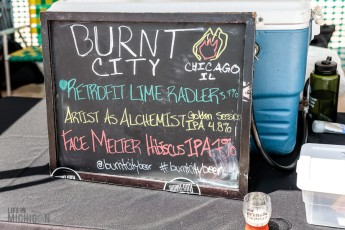 BURNT
CITY
CHICAGO
IL
RETROFIT LIME RADLER 5.4%
ARTIST AS ALCHEMIST Golden Session
IPA 4.8%
FACE MELTER HIBISCUS IPA 7%
@burntcitybeer #burntcitybeer
LIFE IN
MICHIGAN